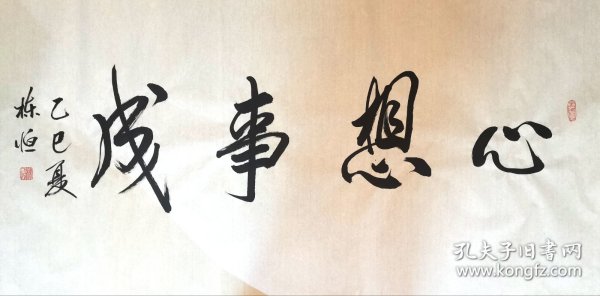 心想事成
乙巳夏
栋恒
孔夫子旧书网
www.kongfz.com